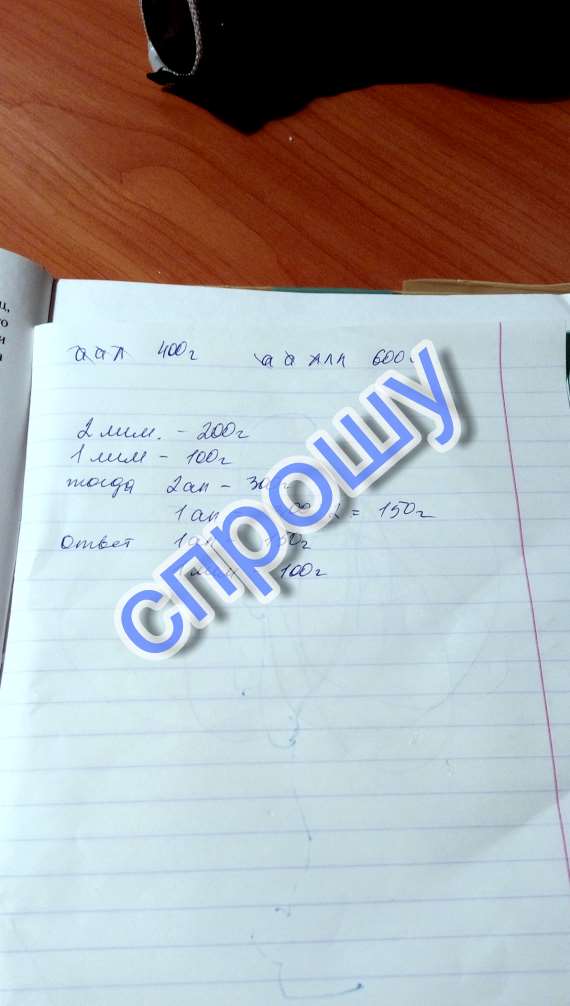 а а л 400г а а л л л 600г
2 лим. - 200г
1 лим - 100г
тогда 2 ап -
1 ап = 150г
ответ 1 ап
100г
спрошу